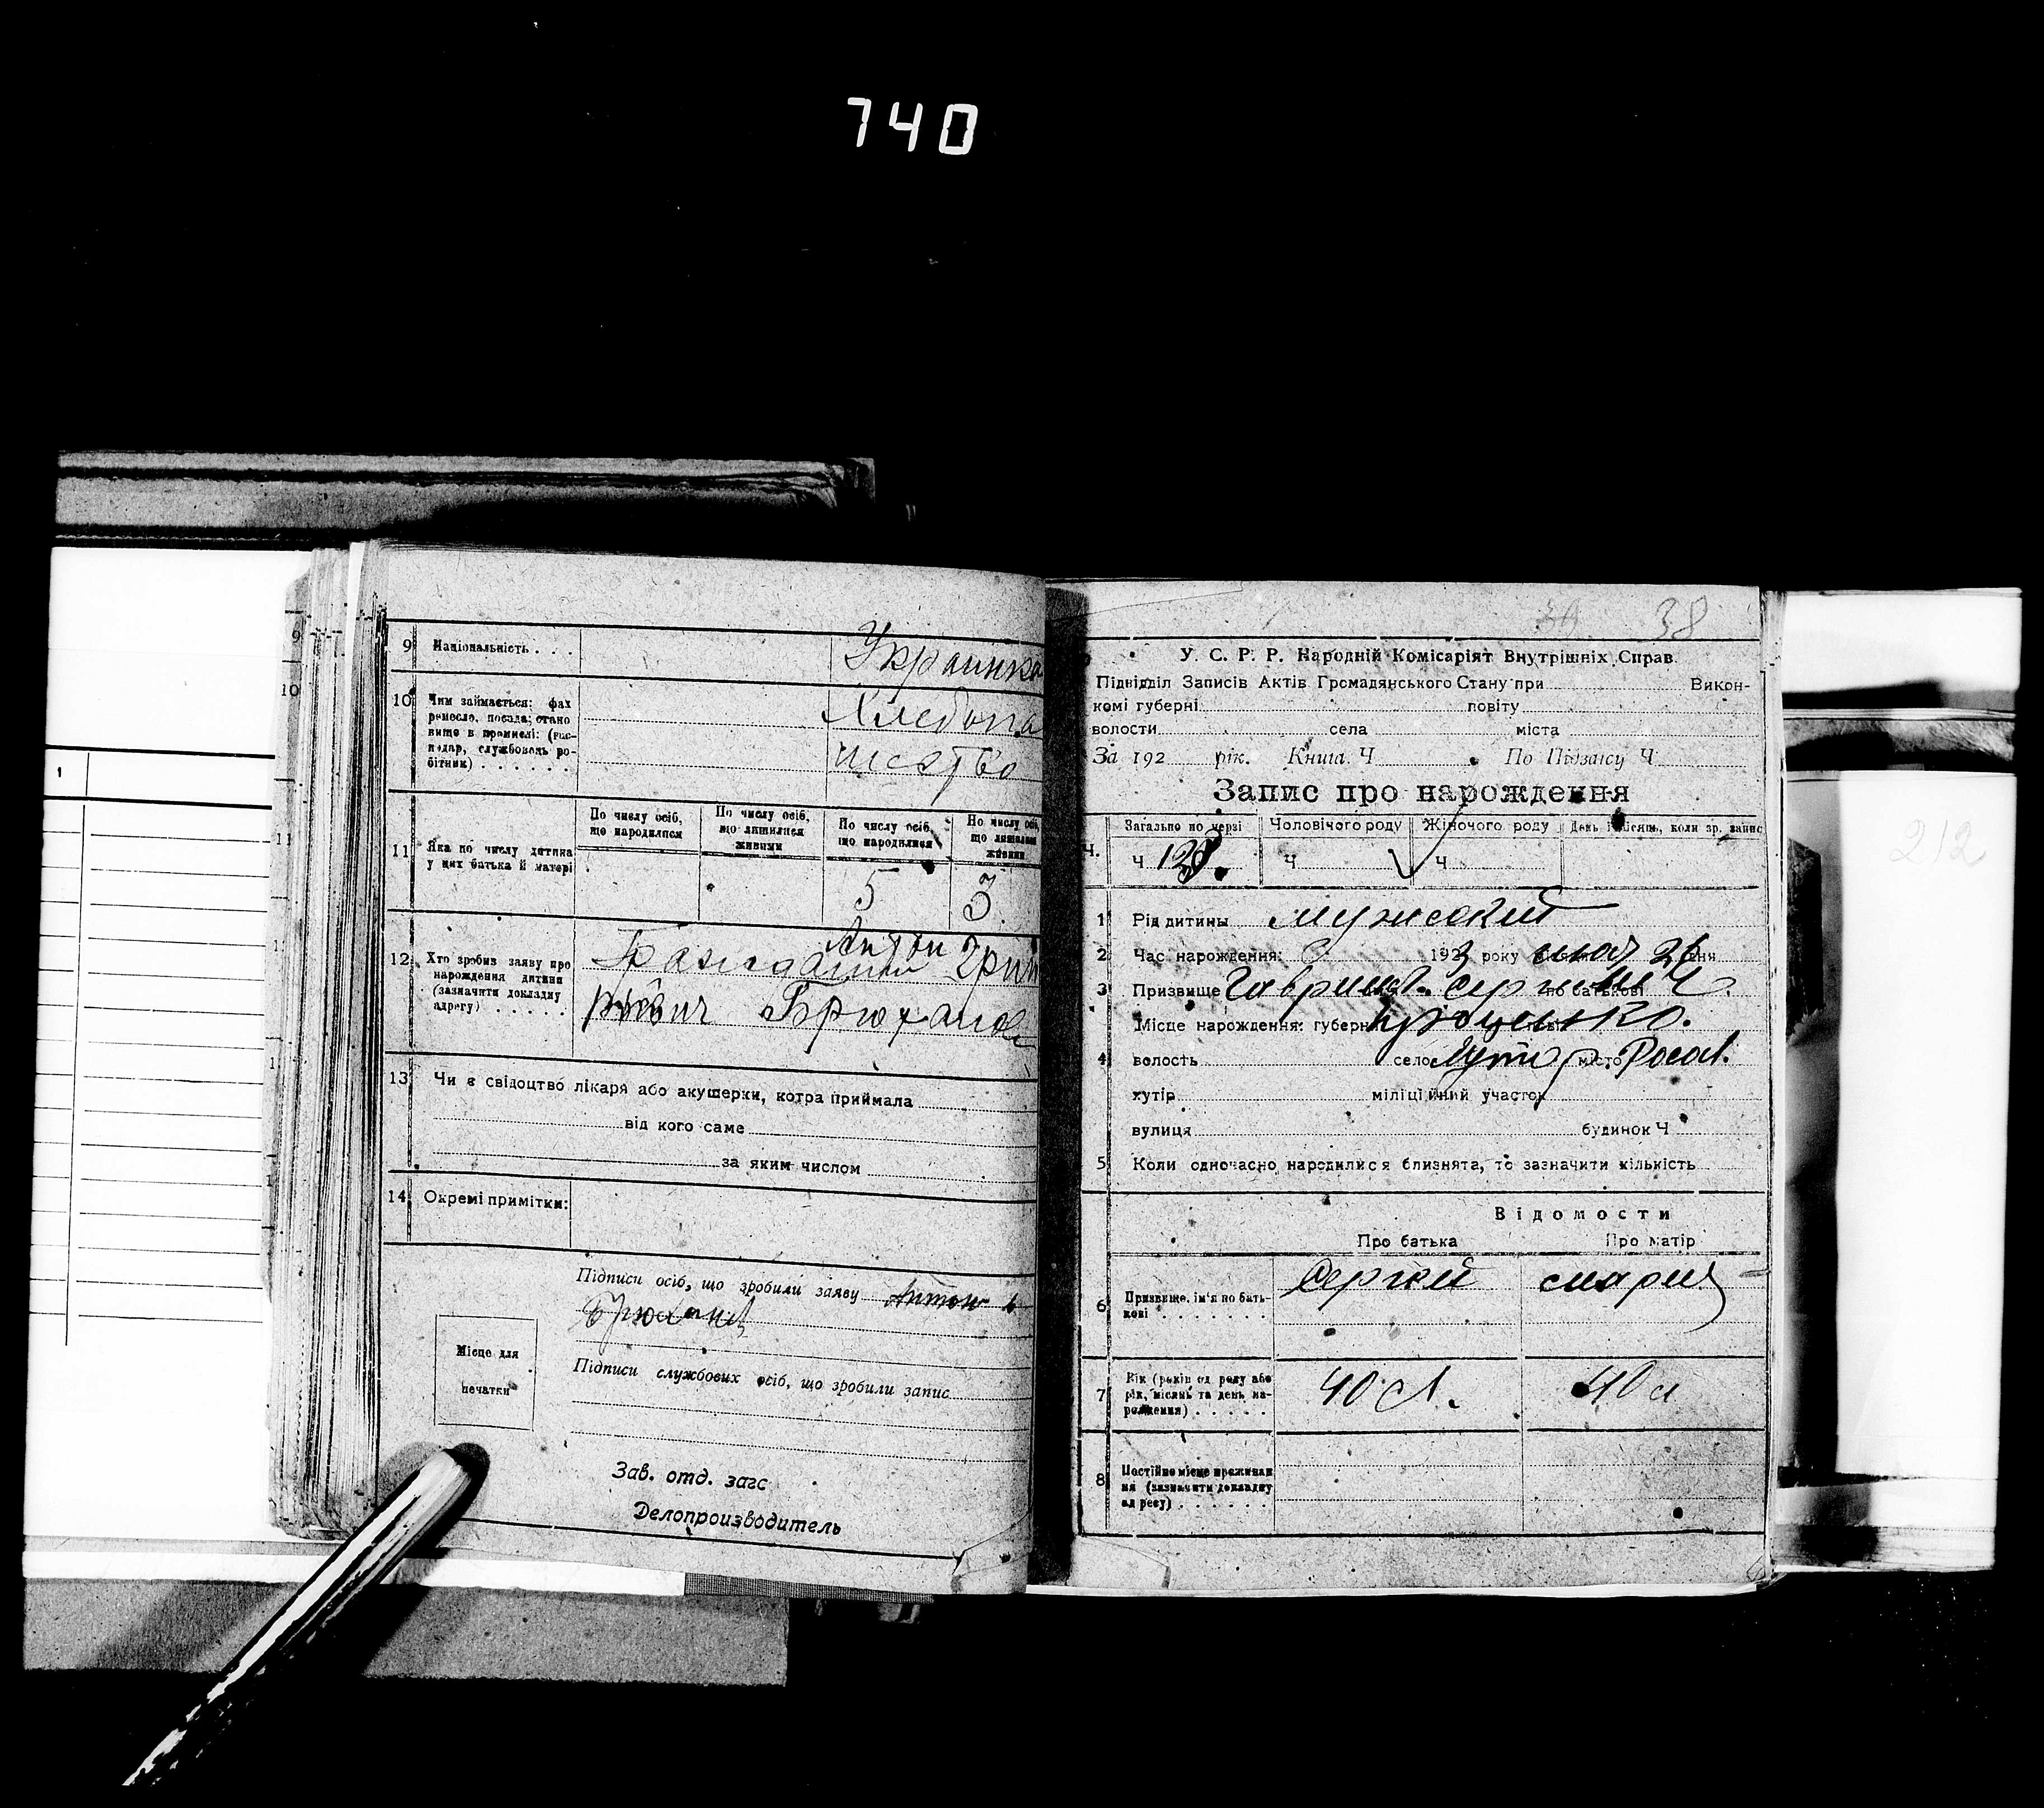 740
9 Національність . . .
Украинка
10 Чим займається: фах
ремесло, посада; стано
вище в промислі: (гос-
подар, службовець ро-
бітник) . . . . . . .
Хлебопа
шество
11 Яка по числу дитина
у цих батька й матері
По числу осіб,
що народилися
По числу осіб,
що лишилися
живими
По числу осіб,
що народилися
По числу осіб,
що лишилися
живими
5
3.
12 Хто зробив заяву про
народження дитини
(зазначити докладну
адресу) . . . . .
Гражданин Антон Григ
13 Чи є свідоцтво лікаря або акушерки, котра приймала
від кого саме
за яким числом
14 Окремі примітки:
Підписи осіб, що зробили заяву Антон
Місце для
печатки
Підписи службових осіб, що зробили запис
Зав. отд. загс
Делопроизводитель
39 38
У. С. Р. Р. Народній Комісаріят Внутрішніх Справ.
Підвідділ Записів Актів Громадянського Стану при Викон-
комі губерні повіту
волости села міста
За 192 рік. Книга Ч По Підзагсу Ч
Запис про нарождення
Ч.
Загально по черзі
Чоловічого роду
Жіночого роду
День і місяць, коли зр. запис
Ч
Ч
Ч
1 Рід дитины мужский
2 Час нарождення: 1923 року мая 26 дня
3 Призвище по батькові
Місце нарождення: губерн
4 волость село місто
хутір міліційний участок
вулиця будинок Ч
5 Коли одночасно народилися близнята, то зазначити кількість
Відомости
Про батька
Про матір
6 Призвище, ім'я по бать-
кові . . . . . . .
Сергей
мария
7 Вік (років од роду або
рік, місяць та день на-
рождення) . . . . .
40 л.
40 л
8 Постійне місце проживан
ня (зазначити докладну
адресу) . . . . . .
212